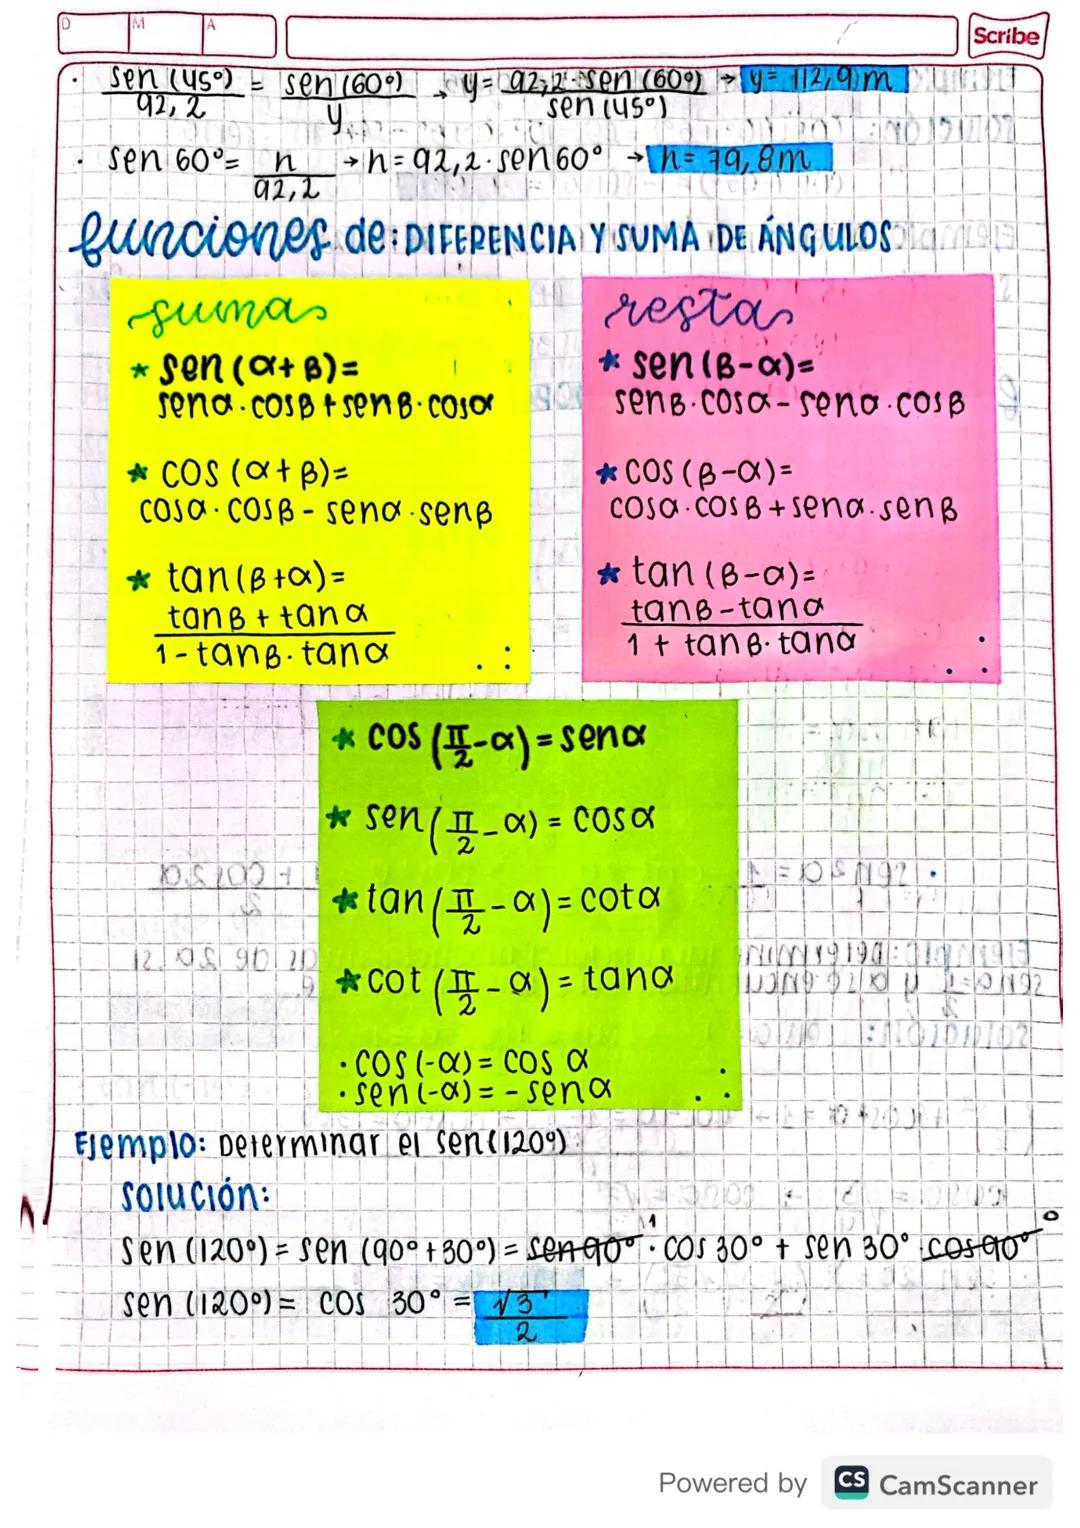 D M A
Scribe
· sen (45°) / 92,2 = sen (60°) / y → y = 92,2 · sen (60°) / sen (45°) → y = 112,9 m
· sen 60° = h / 92,2 → h = 92,2 · sen 60° → h = 79,8 m
funciones de: DIFERENCIA Y SUMA DE ÁNGULOS
suma
* sen (α + β) =
senα · cosβ + senβ · cosα
* cos (α + β) =
cosα · cosβ - senα · senβ
* tan (β + α) =
tanβ + tanα
1 - tanβ · tanα
resta
* sen (β - α) =
senβ · cosα - senα · cosβ
* cos (β - α) =
cosα · cosβ + senα · senβ
* tan (β - α) =
tanβ - tanα
1 + tanβ · tanα
* cos (π/2 - α) = senα
* sen (π/2 - α) = cosα
* tan (π/2 - α) = cotα
* cot (π/2 - α) = tanα
· cos (-α) = cos α
· sen (-α) = - senα
Ejemplo: Determinar el sen (120°)
solución:
sen (120°) = sen (90° + 30°) = sen 90° 1 · cos 30° + sen 30° · cos 90° 0
sen (120°) = cos 30° = √3 / 2
Powered by CS CamScanner